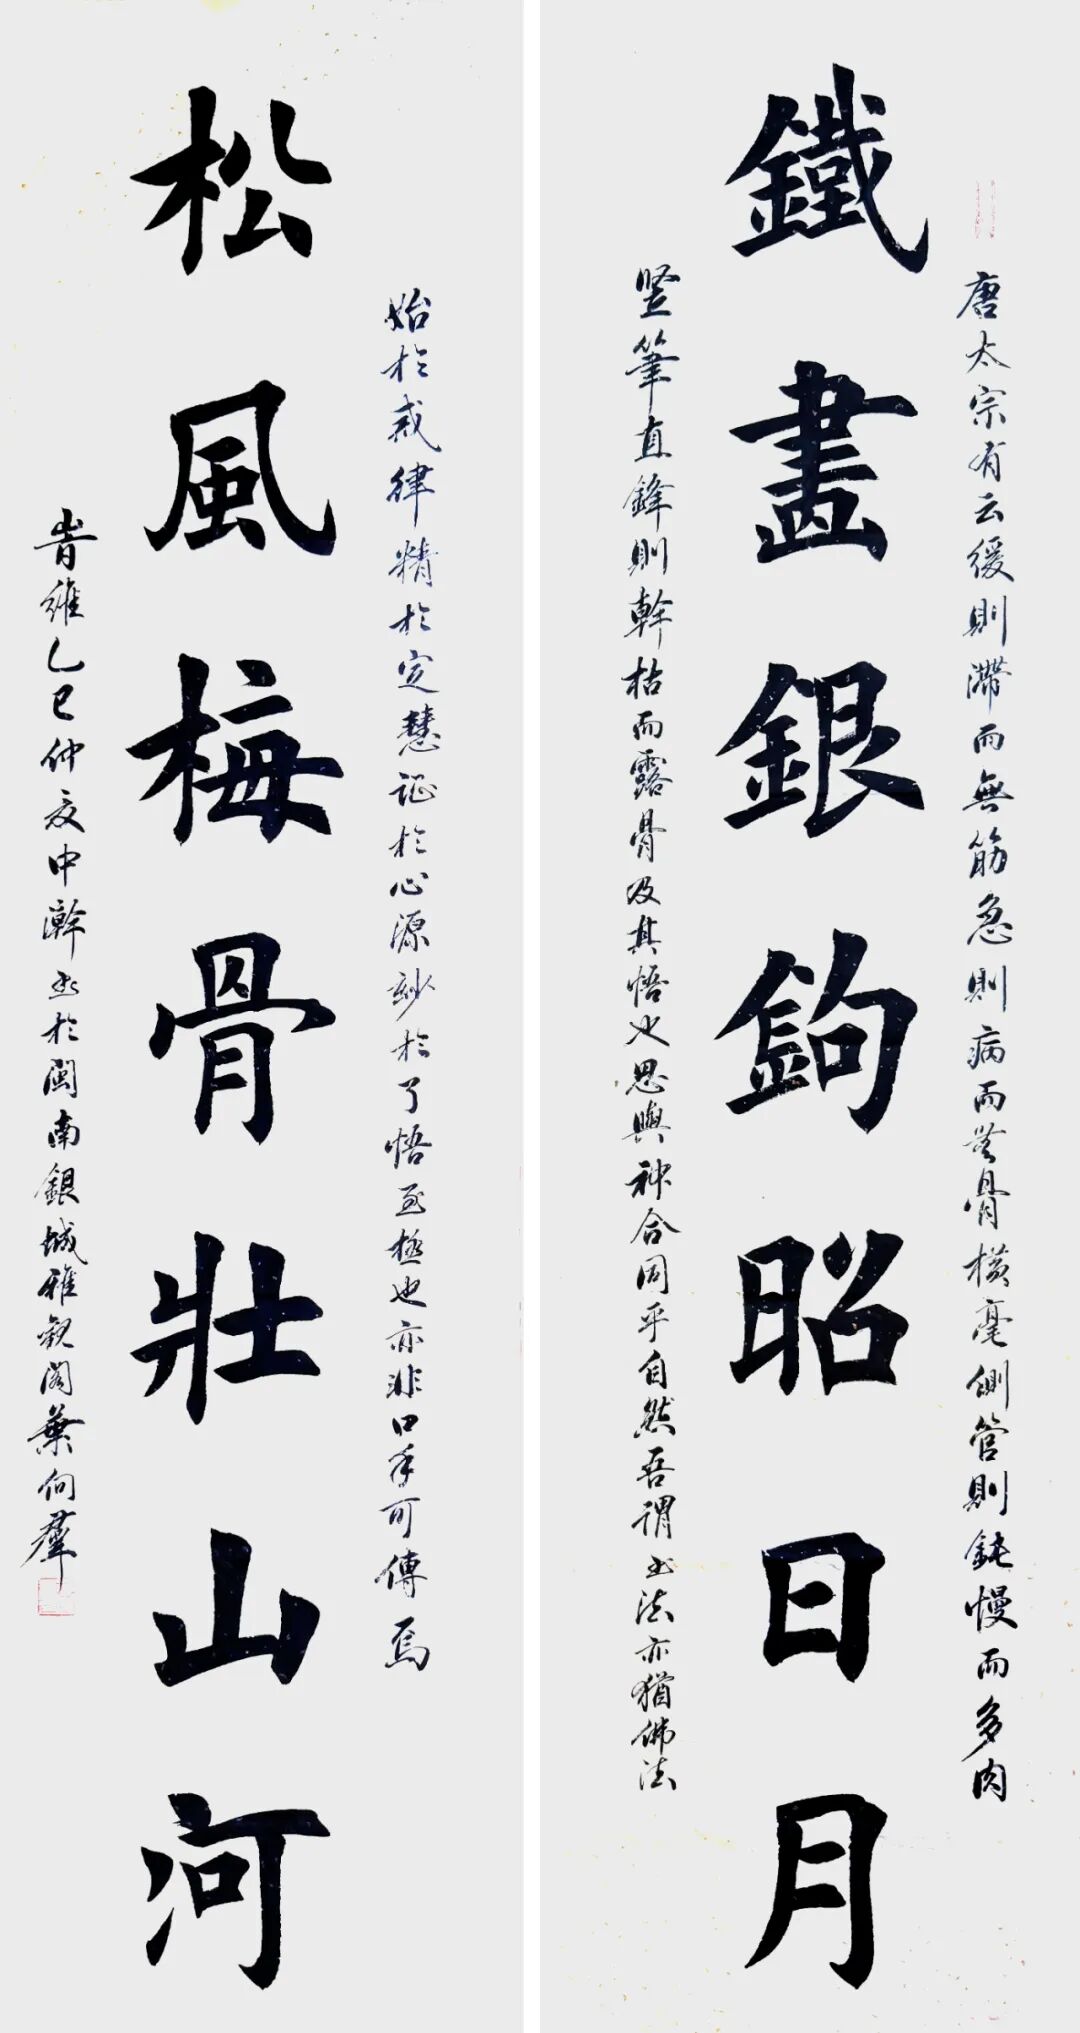 唐太宗有云緩則滯而無筋急則病而無骨橫毫側管則鈍慢而多肉
鐵畫銀鉤昭日月
竪筆直鋒則幹枯而露骨及其悟也思與神合同乎自然吾謂書法亦猶佛法
始於戒律精於定慧証於心源妙於了悟至極也亦非口手可傳焉
松風梅骨壯山河
旹維乙巳仲夏中澣書於閩南銀城雅觀閣葉向群